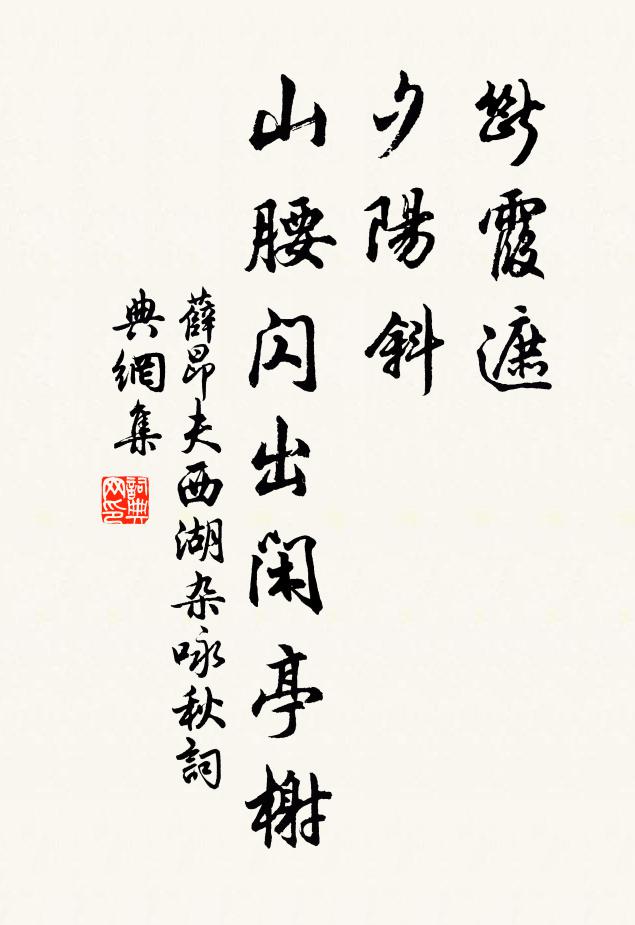 断霞遮
夕陽斜
山腰闪出閑亭榭
薛昂夫西湖杂咏秋詞
典網集
詞典
网印